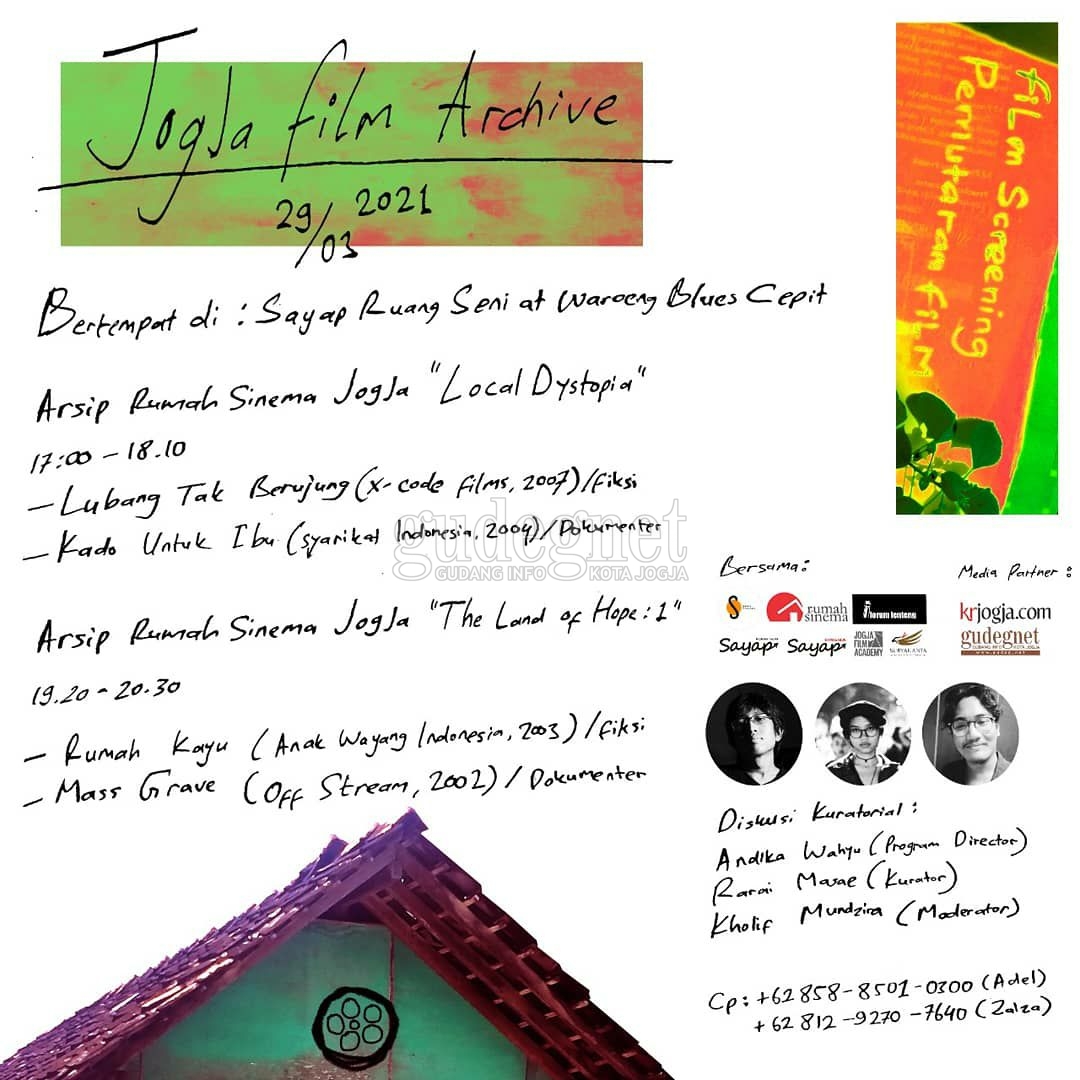 JogJa film Archive
29/03 2021
film Screening
Pemutaran film
Bertempat di : Sayap Ruang Seni at Waroeng Blues Cepit
Arsip Rumah Sinema JogJa "Local Dystopia"
17:00 - 18.10
- Lubang Tak Berujung (X-code films, 2007)/fiksi
- Kado Untuk Ibu (syarikat Indonesia, 2004)/Dokumenter
gudegnet
GUDANG INFO KOTA JOGJA
Arsip Rumah Sinema JogJa "The Land of Hope : 1"
19.20 - 20.30
- Rumah Kayu (Anak Wayang Indonesia, 2003)/fiksi
- Mass Grave (Off Stream, 2002)/Dokumenter
Bersama :
rumah
sinema
forum lenteng
Sayap
Sayap
JOGJA
FILM
ACADEMY
Media Partner :
krjogja.com
gudegnet
GUDANG INFO KOTA JOGJA
Diskusi Kuratorial :
Andika Wahyu (Program Director)
Rarai Masae (Kurator)
Kholif Mundzira (Moderator)
Cp : +62 858-8501-0300 (Adel)
+62 812-9270-7640 (Zalza)